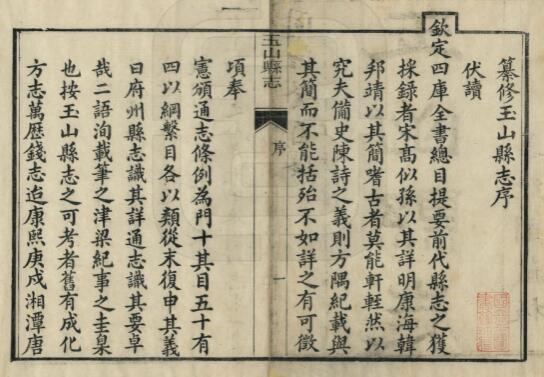 纂修玉山縣志序
伏讀
欽定四庫全書總目提要前代縣志之獲
採錄者宋高似孫以其詳明康海韓
邦靖以其簡嗜古者莫能軒輊然以
究夫備史陳詩之義則方隅紀載與
其簡而不能括殆不如詳之有可徵
玉山縣志
序
一
項奉
憲頒通志條例為門十其目五十有
四以綱繫目各以類從末復申其義
曰府州縣志識其詳通志識其要卓
哉二語洵載筆之津梁紀事之圭臬
也按玉山縣志之可考者舊有成化
方志萬歷錢志迨康熙庚戌湘潭唐